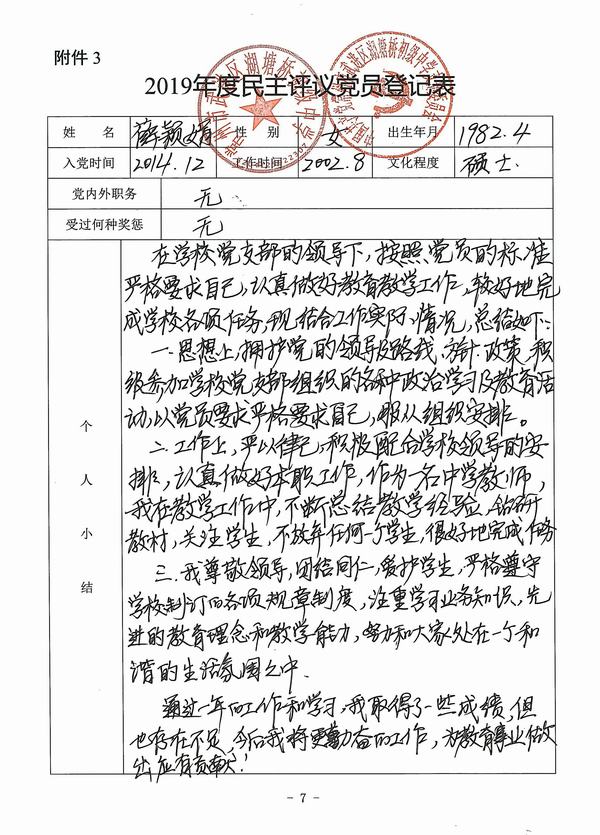 附件 3
2019年度民主评议党员登记表
姓 名 薛颖娟 性 别 女 出生年月 1982.4
入党时间 2014.12 工作时间 2002.8 文化程度 硕士
党内外职务 无
受过何种奖惩 无
个人小结
在学校党支部的领导下,按照党员的标准
严格要求自己,认真做好教育教学工作,较好地完
成学校各项任务,现结合工作实际情况,总结如下:
一.思想上,拥护党的领导及路线、方针、政策,积
极参加学校党支部组织的各种政治学习及教育活
动,以党员要求严格要求自己,服从组织安排。
二.工作上,严以律己,积极配合学校领导的安
排,认真做好本职工作,作为一名中学教师,
我在教学工作中,不断总结教学经验,钻研
教材,关注学生,不放弃任何一个学生,很好地完成任务
三.我尊敬领导,团结同仁,爱护学生,严格遵守
学校制订的各项规章制度,注重学习业务知识,先
进的教育理念和教学能力,努力和大家处在一个和
谐的生活氛围之中.
通过一年的工作和学习,我取得了一些成绩,但
也存在不足,今后我将更勤奋的工作,为教育事业做
出应有贡献!
- 7 -